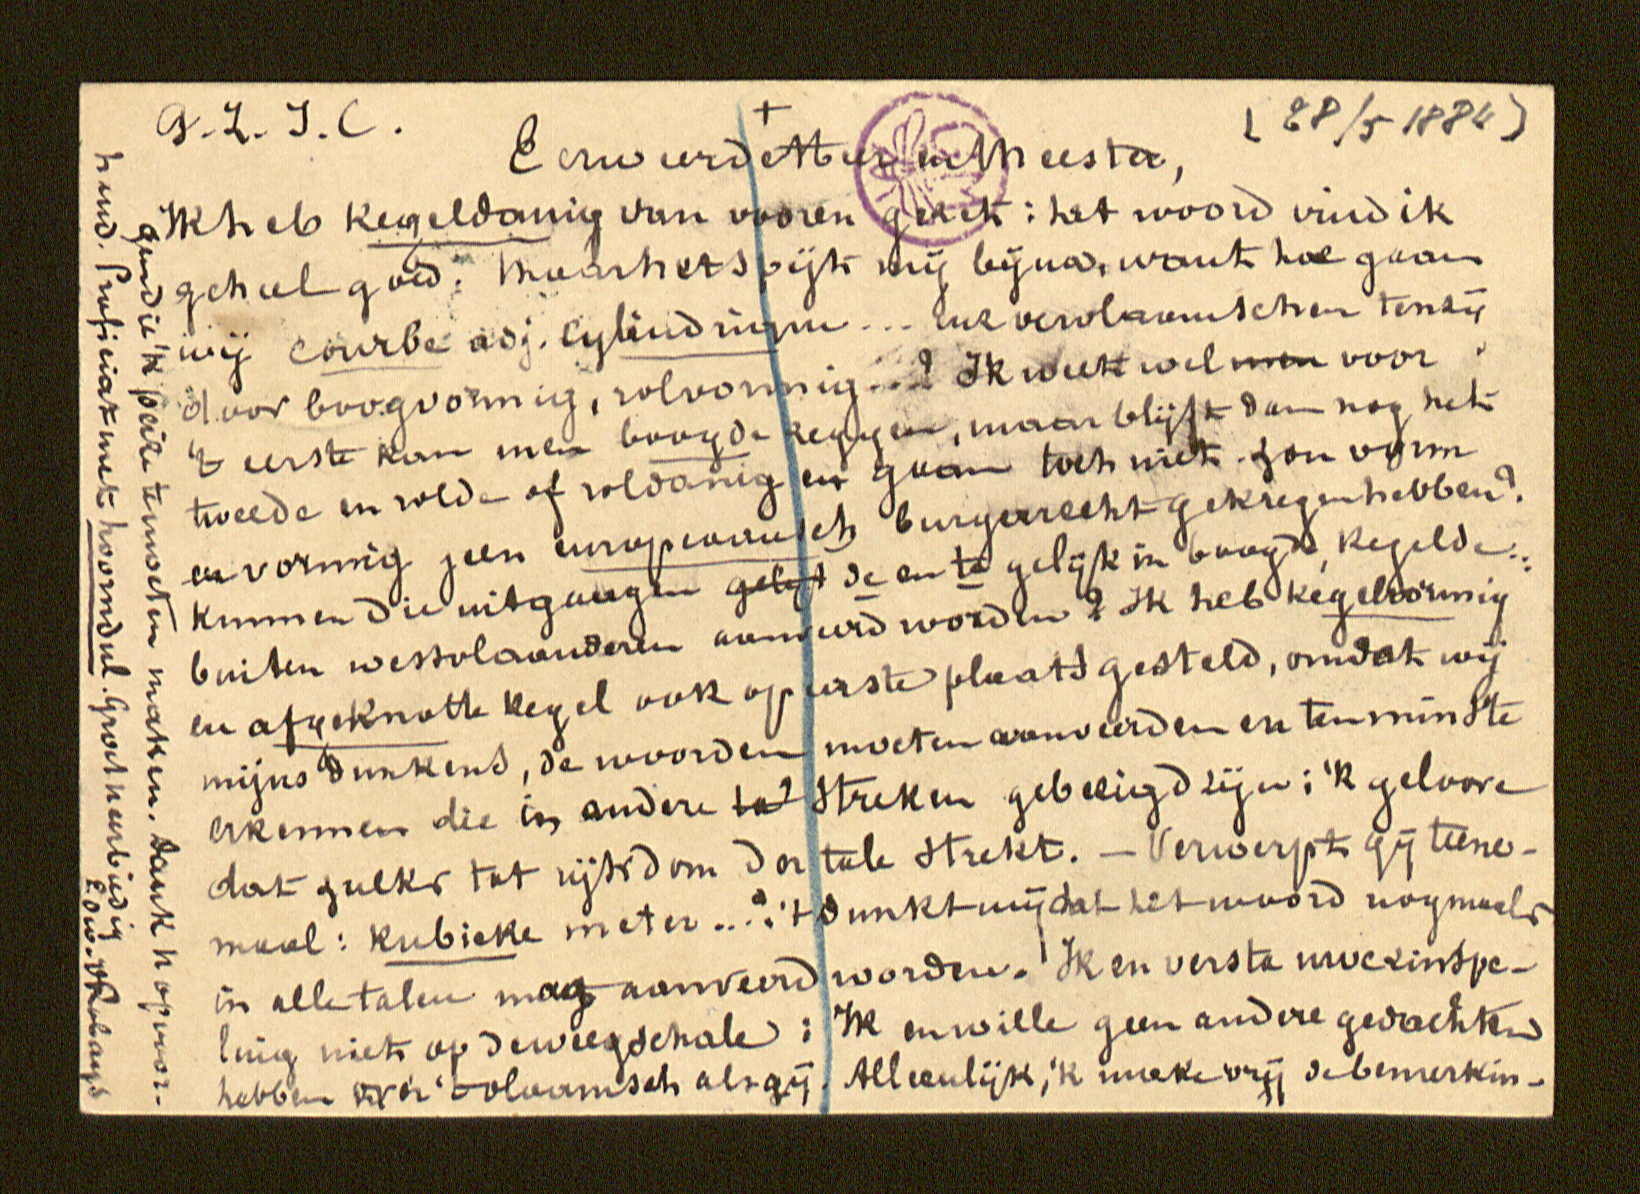 G.L.J.C.
+
[28/5 1884]
Eerweerde Heer en Meester,
Ik heb kegeldanig van vooren gezet: het woord vind ik
geheel goed. Maar het spijt mij bijna, want hoe gaan
wij courbe adj. cylindrique ... enz vervlaamschen tenzij
door boogvormig, rolvormig...? Ik weet wel men voor
't eerste kan men boogde zeggen, maar blijft dan nog het
tweede en rolde of roldanig en gaan toch niet. Zou vorm
en vormig geen europeaansch burgerrecht gekregen hebben?
Kunnen die uitgangen de en te gelijk in boogde, kegelde..
buiten westvlaanderen aanveerd worden? Ik heb kegelvormig
en afgeknotte kegel ook op eerste plaats gesteld, omdat wij
mijns dunkens, de woorden moeten aanveerden en ten minste
erkennen die in andere streken gebezigd zijn; 'k geloove
dat zulks tot rijkdom der tale strekt. — Verwerpt gij teene-
maal: kubieke meter ...? 't dunkt mij dat het woord nogmaals
in alle talen mag aanveerd worden. Ik en versta uwe zinspe-
ling niet op de weegschale: Ik en wille geen andere gedachten
hebben over 't vlaamsch als gij. Alleenlijk, 'k make vrij de bemerkin-
gen die 'k peize te moeten maken. Dank hopvoor-
hend. Proficiat met hoorndul. Groet eerbiedig
Edw. Van Robays